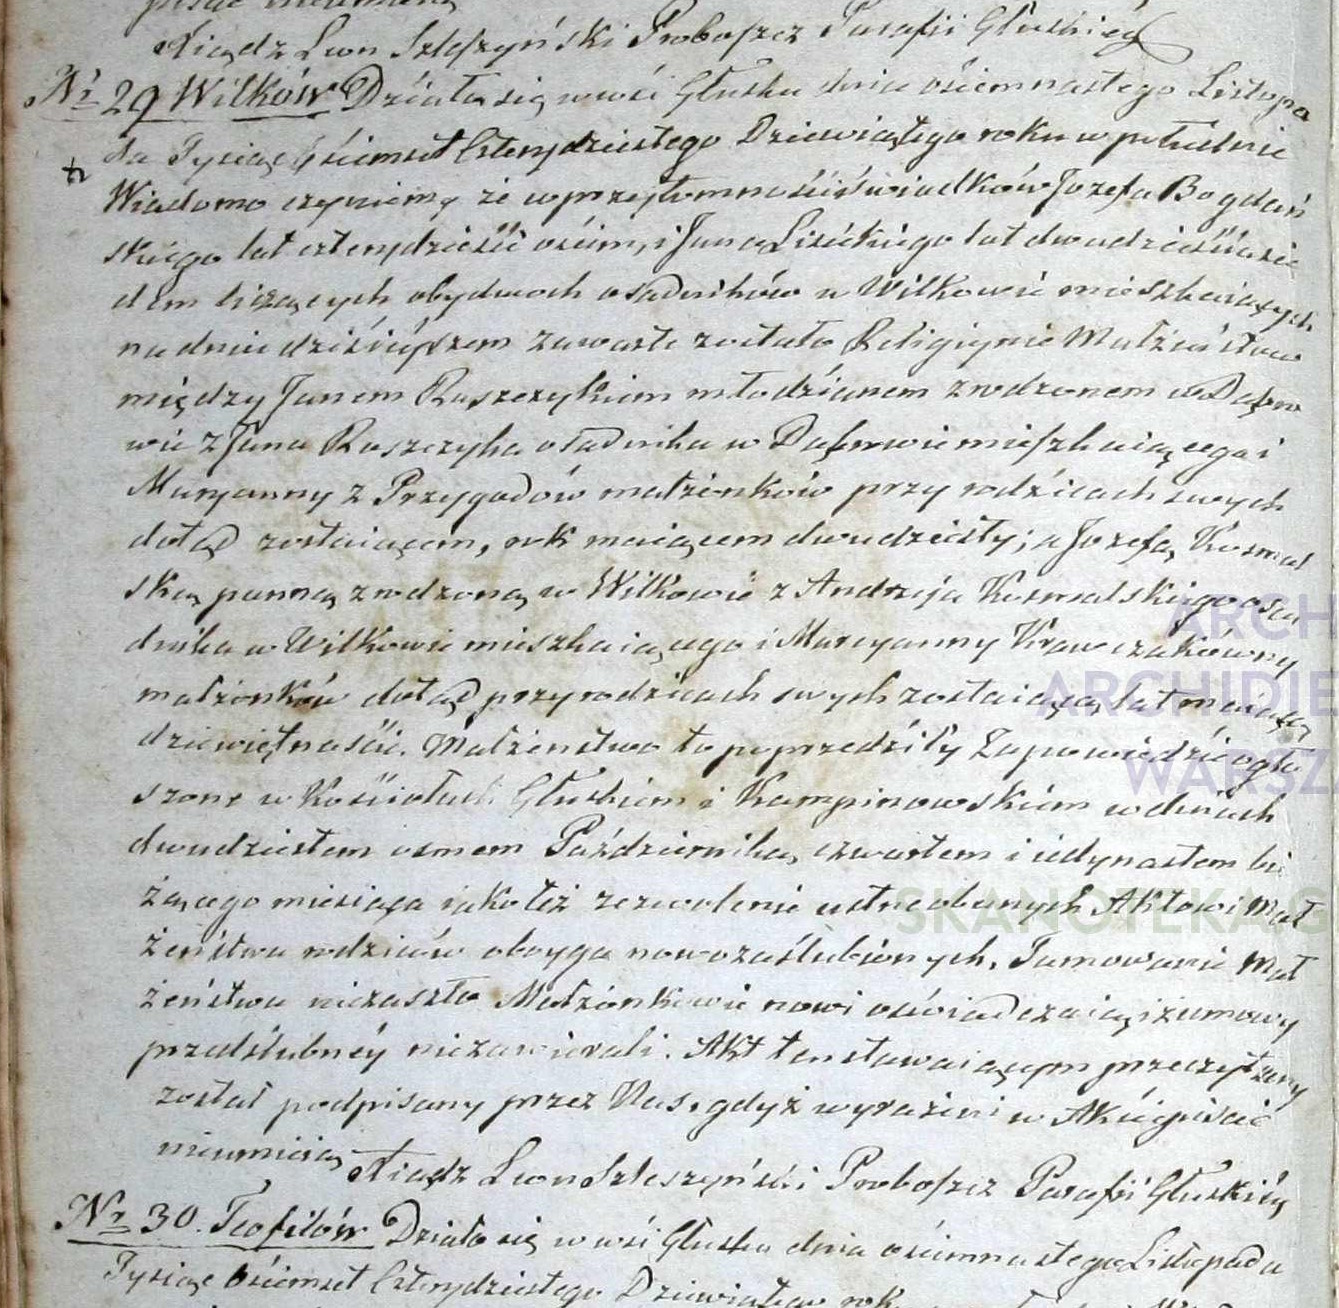 Xiądz Leon Szleszyński Proboszcz Parafii Głuskiéy
Nr 29 Wilków Działo się w wsi Głusku dnia ośiemnastego Listopa
da Tysiąc Ośiemset Czterydziestego Dziewiątego roku w południe
Wiadomo czyniemy że w przytomności świadków Jozefa Bogdań
skiego lat czterydzieści ośim, i Jana Lisickiego lat dwadzieścia sie
dem liczących obydwoch osadników w Wilkowie mieszkaiących
na dniu dzisieyszem zawarte zostało Religiynie Małżeństwo
między Janem Ruszczykiem młodzianem zrodzonem w Dąbro
wie z Jana Ruszczyka osadnika w Dąbrowie mieszkaiącego i
Maryanny z Przygodów małżonków przy rodzicach swych
dotąd zostaiącem, rok maiącem dwudziesty; a Jozefą Kosmal
ską panną zrodzoną w Wilkowie z Andrzeja Kosmalskiego osa
dnika w Wilkowie mieszkaiącego i Maryanny Krawczakówny
małżonków dotąd przy rodzicach swych zostaiącą lat maiącą
dziewiętnaście. Małżeństwo to poprzedziły Zapowiedzie ogło
szone w Kościołach Głuskiem i Kampinowskiem w dniach
dwudziestem osmem Października, czwartem i iedynastem bie
żącego miesiąca iako też zezwolenie ustne obecnych Aktowi Mał
żeństwa rodziców oboyga nowozaślubionych. Tamowanie Mał
żeństwa niezaszło Małżonkowie nowi oświadczaią iż umowy
przedślubnéy niezawierali. Akt ten stawaiącym przeczytany
został podpisany przez Nas, gdyż wyrażeni w Akcie pisać
nieumieią Xiądz Leon Szleszyński Proboszcz Parafii Głuskiéy
Nr 30. Teofilów Działo się w wsi Głusku dnia ośiemnastego Listopada
Tysiąc Ośiemset Czterydziestego Dziewiątego roku
ARCH
ARCHIDIE
WARSZ
SKANOTEKA.G